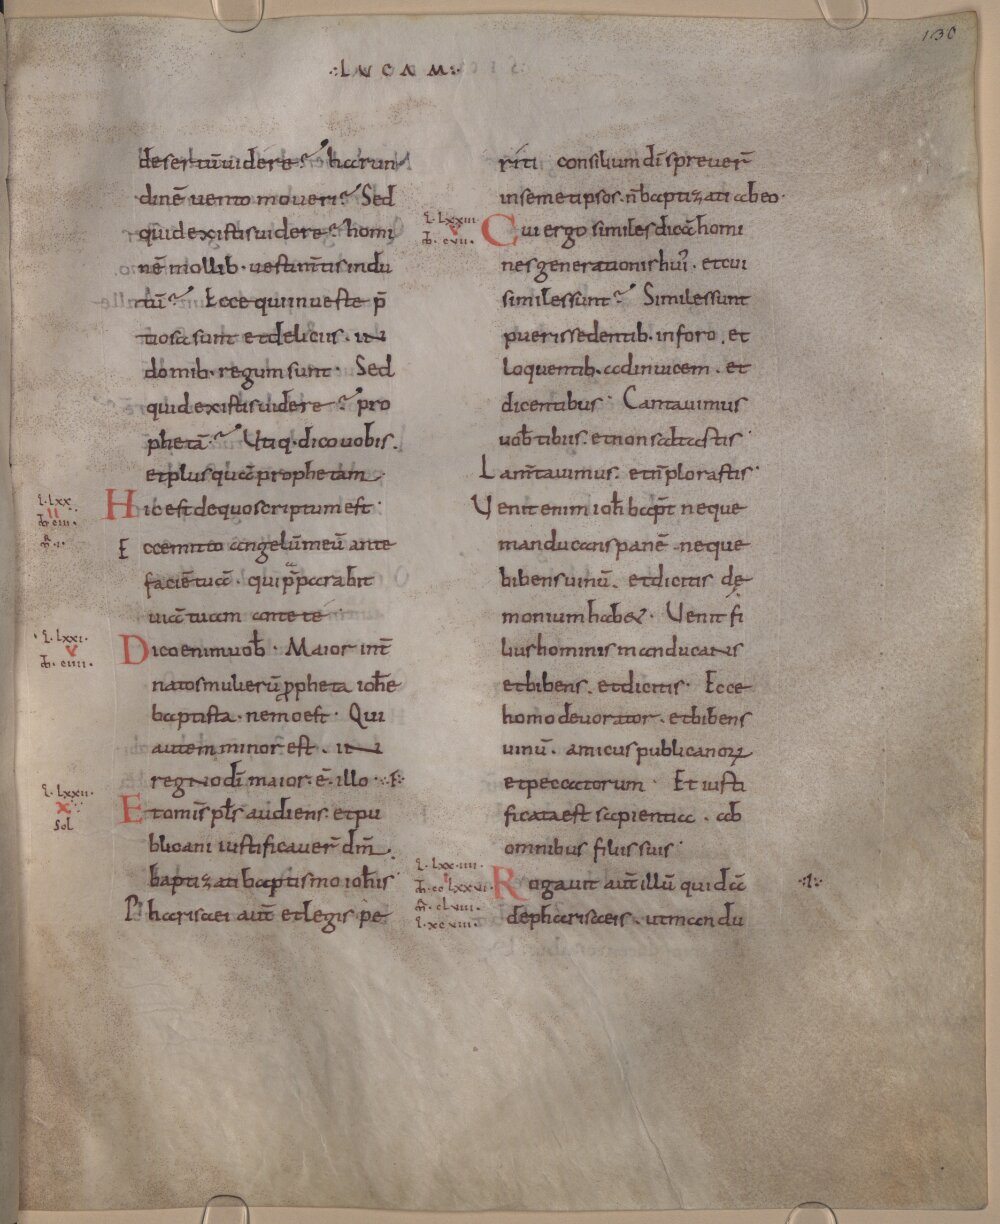 130
·:LVCAM:·
desertū uidere? harun
dinē uento moueri? Sed
quid existis uidere? homi
nē mollib· uestim̄tis indu
tū? Ecce qui in ueste p̄
tiosa sunt et deliciis· in
domib· regum sunt· Sed
quid existis uidere? pro
phetā? Utiq· dico uobis·
et plus quā prophetam·
L·Lxx·
II
Hic est de quo scriptum est·
Ecce mitto angelū meū ante
faciē tuā· qui p̄parabit
uiā tuam ante te·
L·Lxxi·
V
Dico enim uob̄· Maior int̄
natos mulierū ꝓpheta ioħe
baptista· nemo est· Qui
autem minor est· in
regno dī maior· ē· illo·
L·Lxxii·
X
Sol
Et om̄s pl̄s audiens· et pu
blicani iustificauer̄ dm̄·
baptizati baptismo ioħis
Pharisaei aut̄ et legis pe
riti consilium dī spreuer̄
in semetipsos· n̄ baptizati ab eo·
L·Lxxiii
V
Cui ergo similes dicā homi
nes generationis hui'· et cui
similes sunt? Similes sunt
pueris sedentib· in foro· et
loquentib· ad inuicem· et
dicentibus· Cantauimus
uob̄ tibiis· et non saltastis·
Lam̄tauimus· et n̄ plorastis·
Uenit enim ioħ bapt̄ neque
manducans panē neque
bibens uinū· et dicitis de
monium habe&· Uenit fi
lius hominis manducans
et bibens· et dicitis· Ecce
homo deuorator· et bibens
uinū· amicus publicanoꝝ
et peccatorum· Et iusti
ficata est sapientia· ab
omnibus filiis suis·
L·Lxx·iiii·
Rogauit aut̄ illū quidā
de pharisaeis· ut mandu